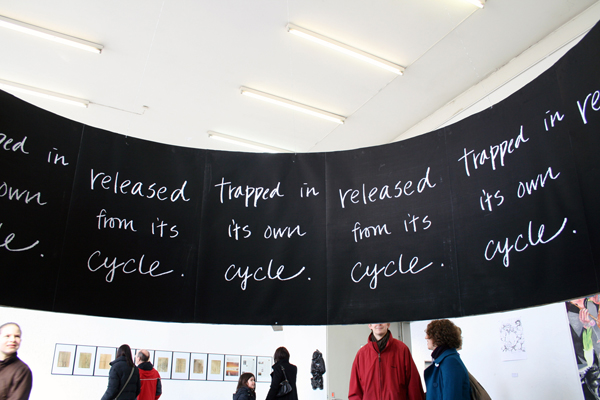 ped in
own
e.
released
from its
cycle.
trapped in
its own
cycle.
released
from its
cycle.
trapped in
its own
cycle.
re